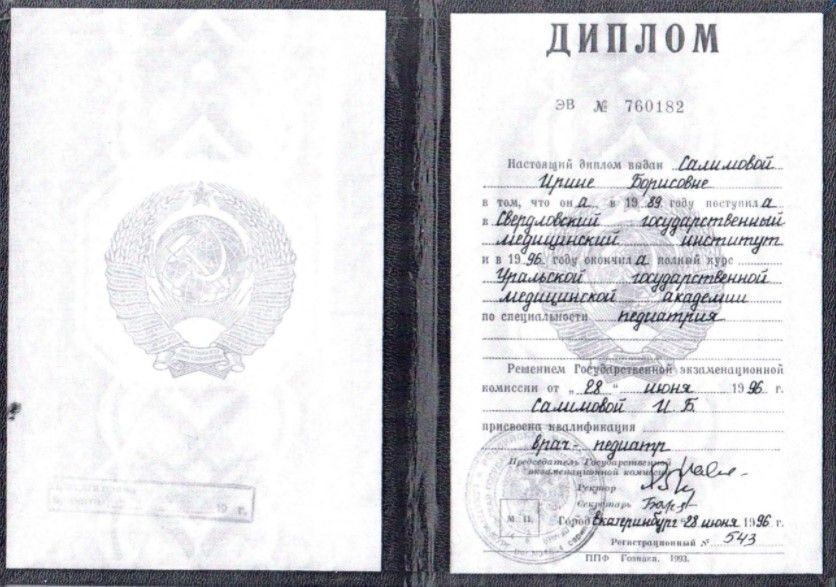 ДИПЛОМ
ЭВ № 760182
Настоящий диплом выдан Салимовой
Ирине Борисовне
в том, что он а в 19 89 году поступил а
в Свердловский государственный
медицинский институт
и в 19 96 году окончил а полный курс
Уральской государственной
медицинской академии
по специальности педиатрия
Решением Государственной экзаменационной
комиссии от „ 28 “ июня 19 96 г.
Салимовой И. Б.
присвоена квалификация
врач - педиатр
Председатель Государственной
экзаменационной комиссии
Ректор
Секретарь
М. П. Город Екатеринбург 28 июня 19 96 г.
Регистрационный № 543
ППФ Гознака. 1993.
19 г.